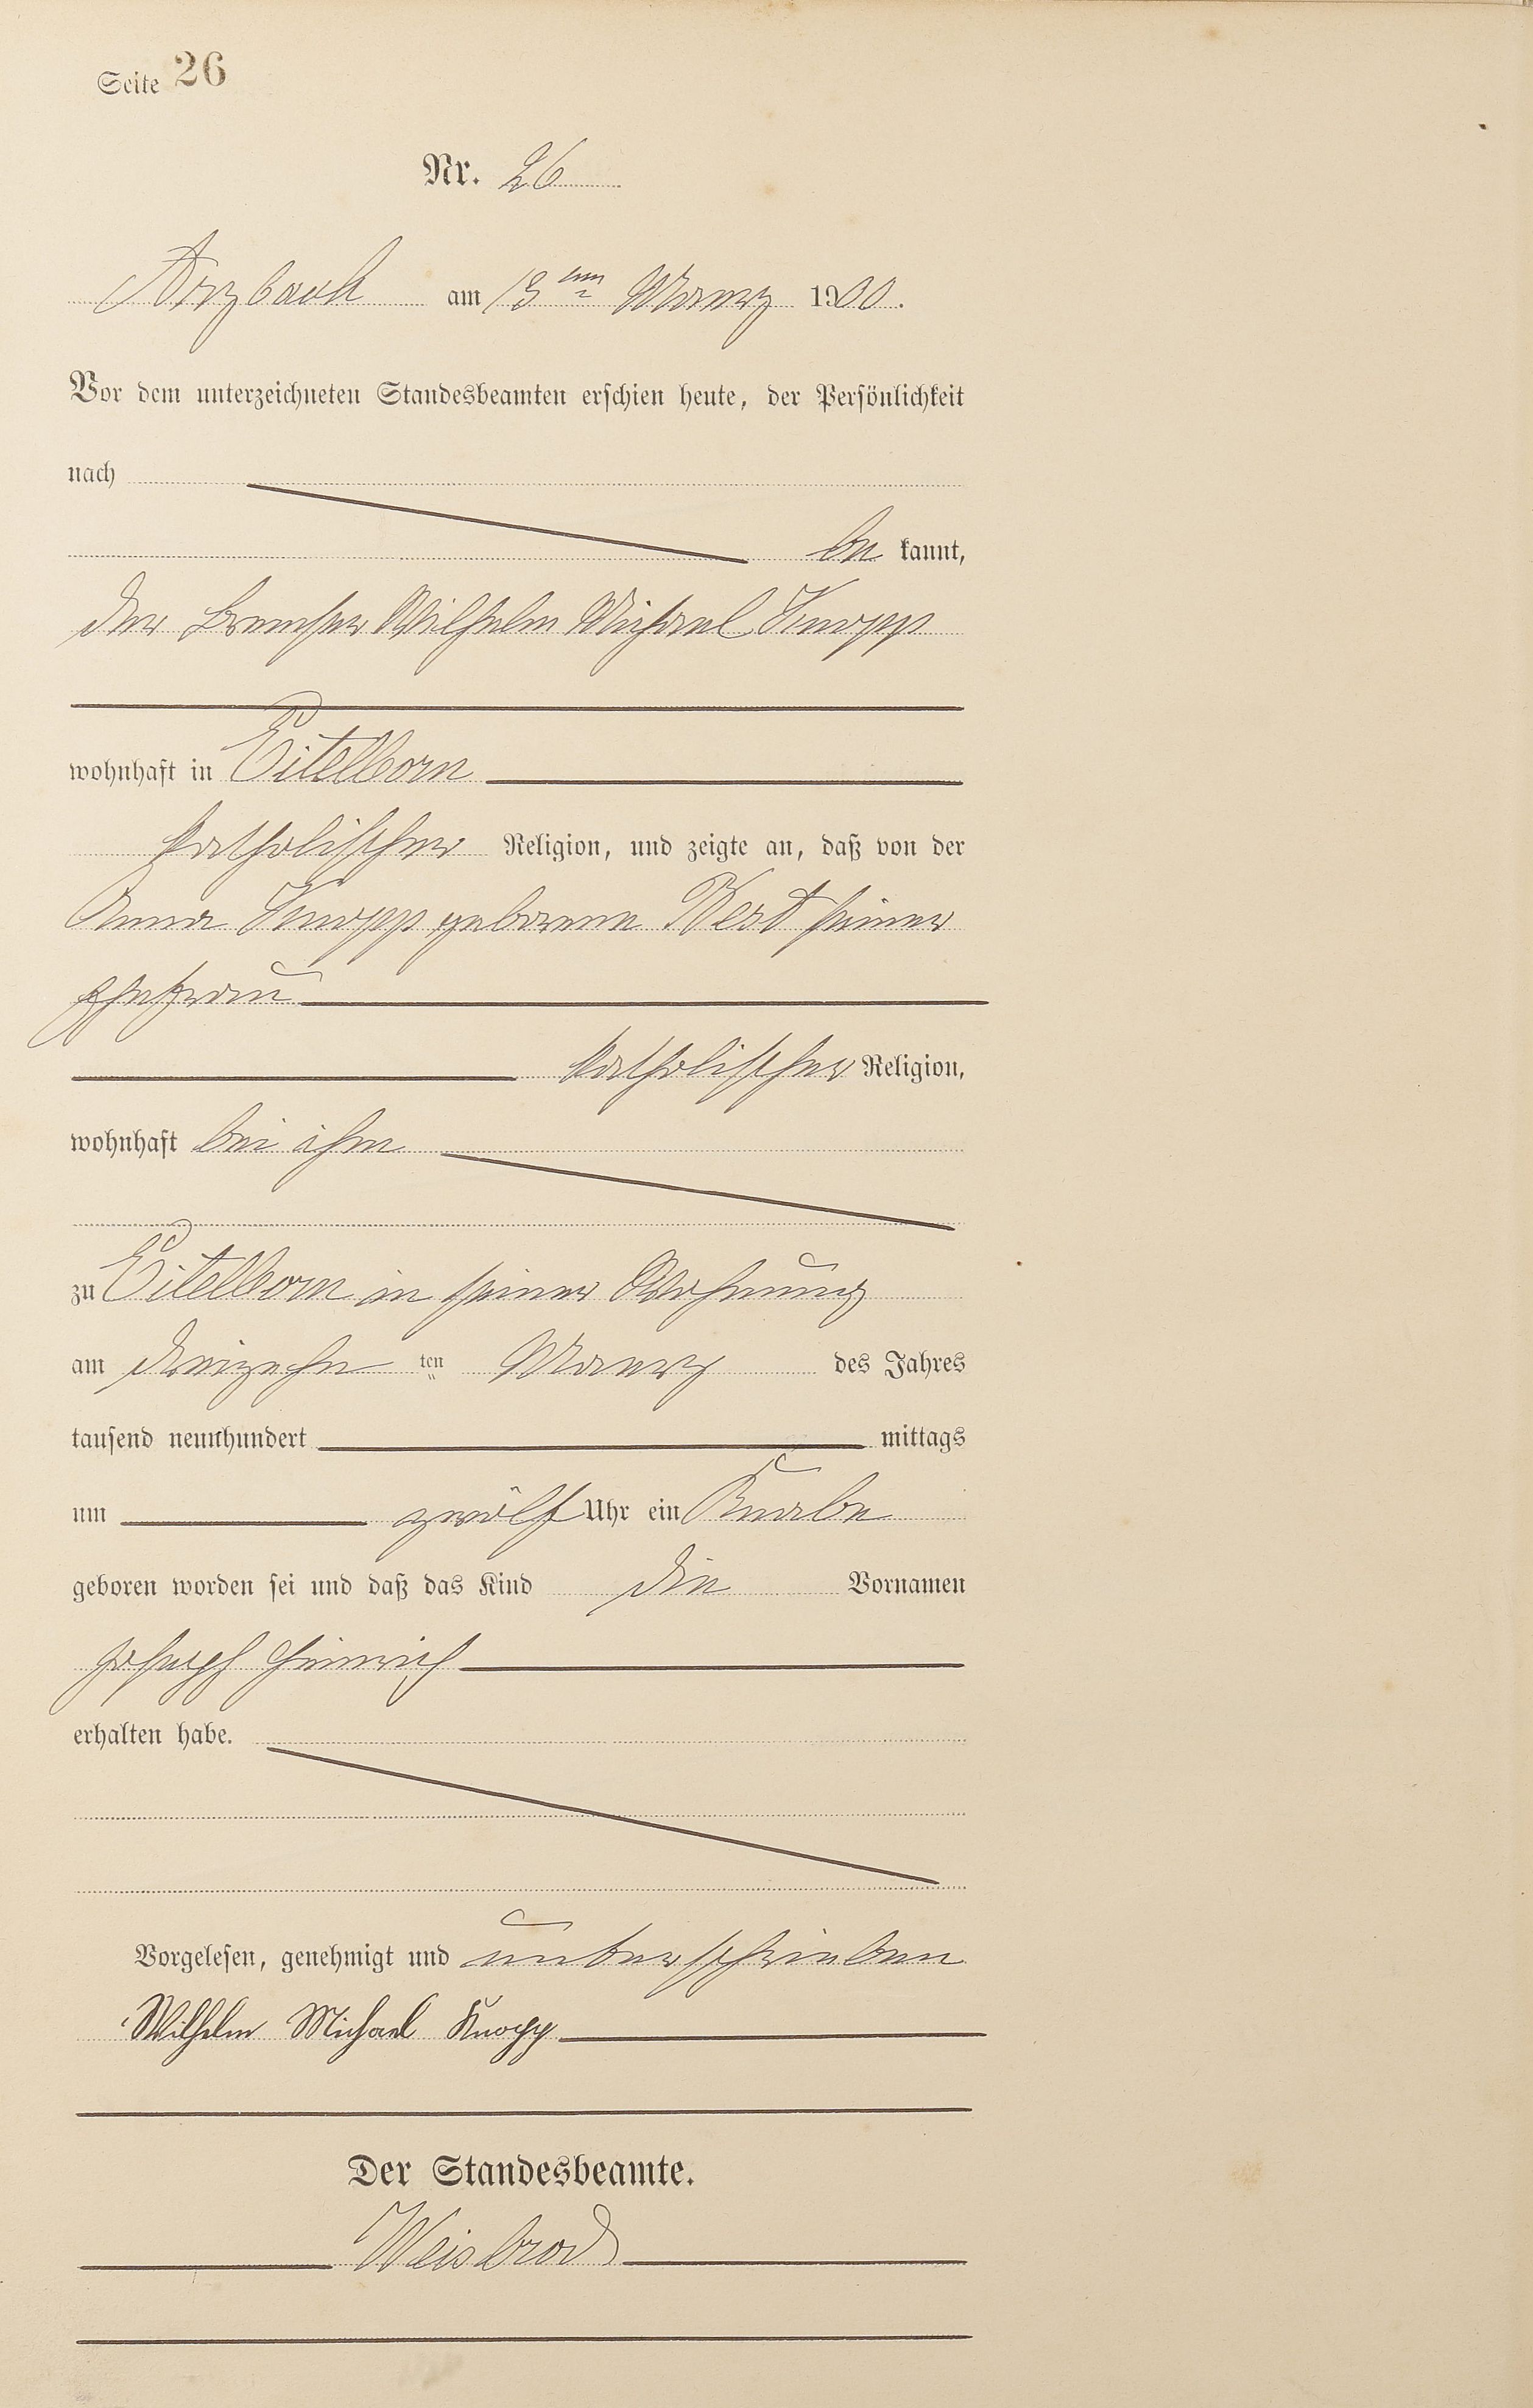 Seite 26
Nr. 26
Arzbach am 13ten März 1900.
Vor dem unterzeichneten Standesbeamten erschien heute, der Persönlichkeit
nach
be kannt,
der Bremser Wilhelm Michael Knopp
wohnhaft in Eitelborn
katholischer Religion, und zeigte an, daß von der
Anna Knopp geborene Best seiner
Ehefrau
katholischer Religion,
wohnhaft bei ihm
zu Eitelborn in seiner Wohnung
am dreizehn ten März des Jahres
tausend neunhundert mittags
um zwölf Uhr ein Knabe
geboren worden sei und daß das Kind die Vornamen
Joseph Heinrich
erhalten habe.
Vorgelesen, genehmigt und unterschrieben
Wilhelm Michael Knopp
Der Standesbeamte.
Weisbrod